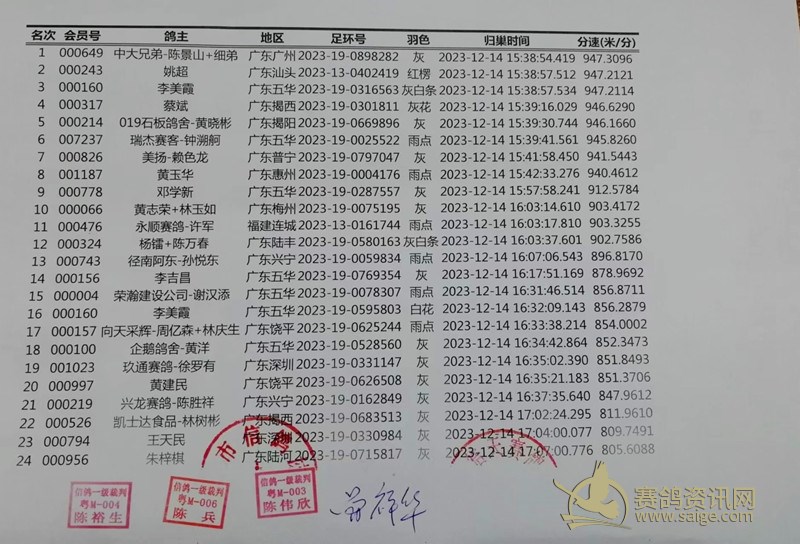 名次 会员号 鸽主 地区 足环号 羽色 归巢时间 分速(米/分)
1 000649 中大兄弟-陈景山+细弟 广东广州 2023-19-0898282 灰 2023-12-14 15:38:54.419 947.3096
2 000243 姚超 广东汕头 2023-13-0402419 红楞 2023-12-14 15:38:57.512 947.2121
3 000160 李美霞 广东五华 2023-19-0316563 灰白条 2023-12-14 15:38:57.534 947.2114
4 000317 蔡斌 广东揭西 2023-19-0301811 灰花 2023-12-14 15:39:16.029 946.6290
5 000214 019石板鸽舍-黄晓彬 广东揭阳 2023-19-0669896 灰 2023-12-14 15:39:30.744 946.1660
6 007237 瑞杰赛客-钟溯舸 广东五华 2023-19-0025522 雨点 2023-12-14 15:39:41.561 945.8260
7 000826 美扬-赖色龙 广东普宁 2023-19-0797047 灰 2023-12-14 15:41:58.450 941.5443
8 001187 黄玉华 广东惠州 2023-19-0004176 雨点 2023-12-14 15:42:33.276 940.4612
9 000778 邓学新 广东五华 2023-19-0287557 灰 2023-12-14 15:57:58.241 912.5784
10 000066 黄志荣+林玉如 广东梅州 2023-19-0075195 灰 2023-12-14 16:03:14.610 903.4172
11 000476 永顺赛鸽-许军 福建连城 2023-13-0161744 雨点 2023-12-14 16:03:17.810 903.3255
12 000324 杨镭+陈万春 广东陆丰 2023-19-0580163 灰白条 2023-12-14 16:03:37.601 902.7586
13 000743 径南阿东-孙悦东 广东兴宁 2023-19-0059834 雨点 2023-12-14 16:07:06.543 896.8170
14 000156 李吉昌 广东五华 2023-19-0769354 灰 2023-12-14 16:17:51.169 878.9692
15 000004 荣瀚建设公司-谢汉添 广东五华 2023-19-0078307 雨点 2023-12-14 16:31:46.514 856.8711
16 000160 李美霞 广东五华 2023-19-0595803 白花 2023-12-14 16:32:09.143 856.2879
17 000157 向天采辉-周亿森+林庆生 广东饶平 2023-19-0625244 雨点 2023-12-14 16:33:38.214 854.0002
18 000100 企鹅鸽舍-黄洋 广东五华 2023-19-0528560 灰 2023-12-14 16:34:42.864 852.3473
19 001023 玖通赛鸽-徐罗有 广东深圳 2023-19-0331147 灰 2023-12-14 16:35:02.390 851.8493
20 000997 黄建民 广东饶平 2023-19-0626508 灰 2023-12-14 16:35:21.183 851.3706
21 000219 兴龙赛鸽-陈胜祥 广东兴宁 2023-19-0162849 灰 2023-12-14 16:37:35.640 847.9612
22 000526 凯士达食品-林树彬 广东揭西 2023-19-0683513 灰 2023-12-14 17:02:24.295 811.9610
23 000794 王天民 广东深圳 2023-19-0330984 灰 2023-12-14 17:04:00.077 809.7491
24 000956 朱梓棋 广东陆河 2023-19-0715817 灰 2023-12-14 17:07:00.776 805.6088
市信鸽
信鸽一级裁判
粤M-004
陈裕生
信鸽一级裁判
粤M-006
陈兵
信鸽一级裁判
粤M-003
陈伟欣
赛鸽资讯网
www.saige.com